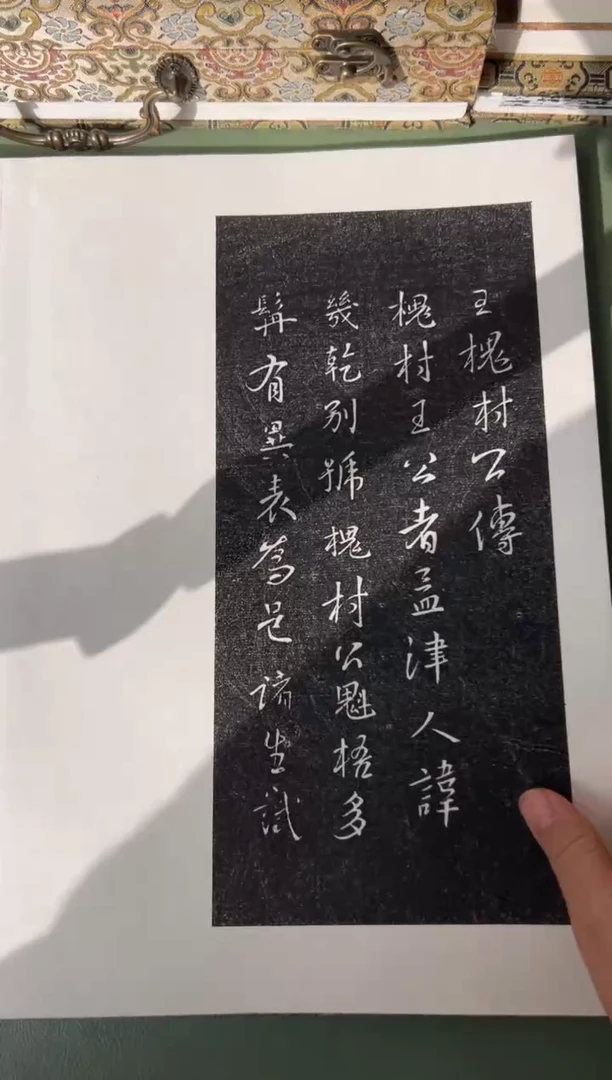 王槐村公傳
槐村王公者孟津人諱
幾乾別號槐村公魁梧多
髯有異表為邑諸生試